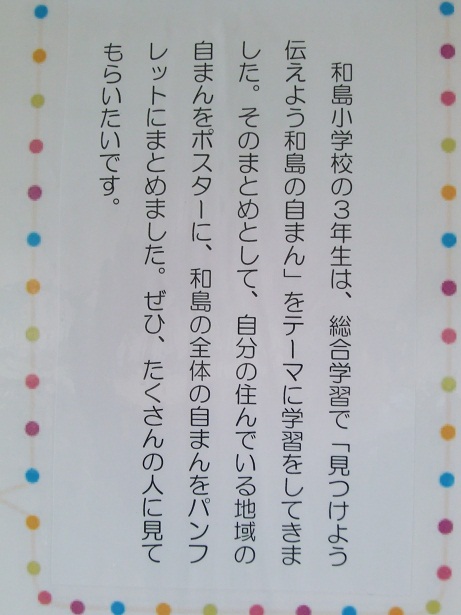 和島小学校の３年生は、総合学習で「見つけよう
伝えよう和島の自まん」をテーマに学習をしてきま
した。そのまとめとして、自分の住んでいる地域の
自まんをポスターに、和島の全体の自まんをパンフ
レットにまとめました。ぜひ、たくさんの人に見て
もらいたいです。